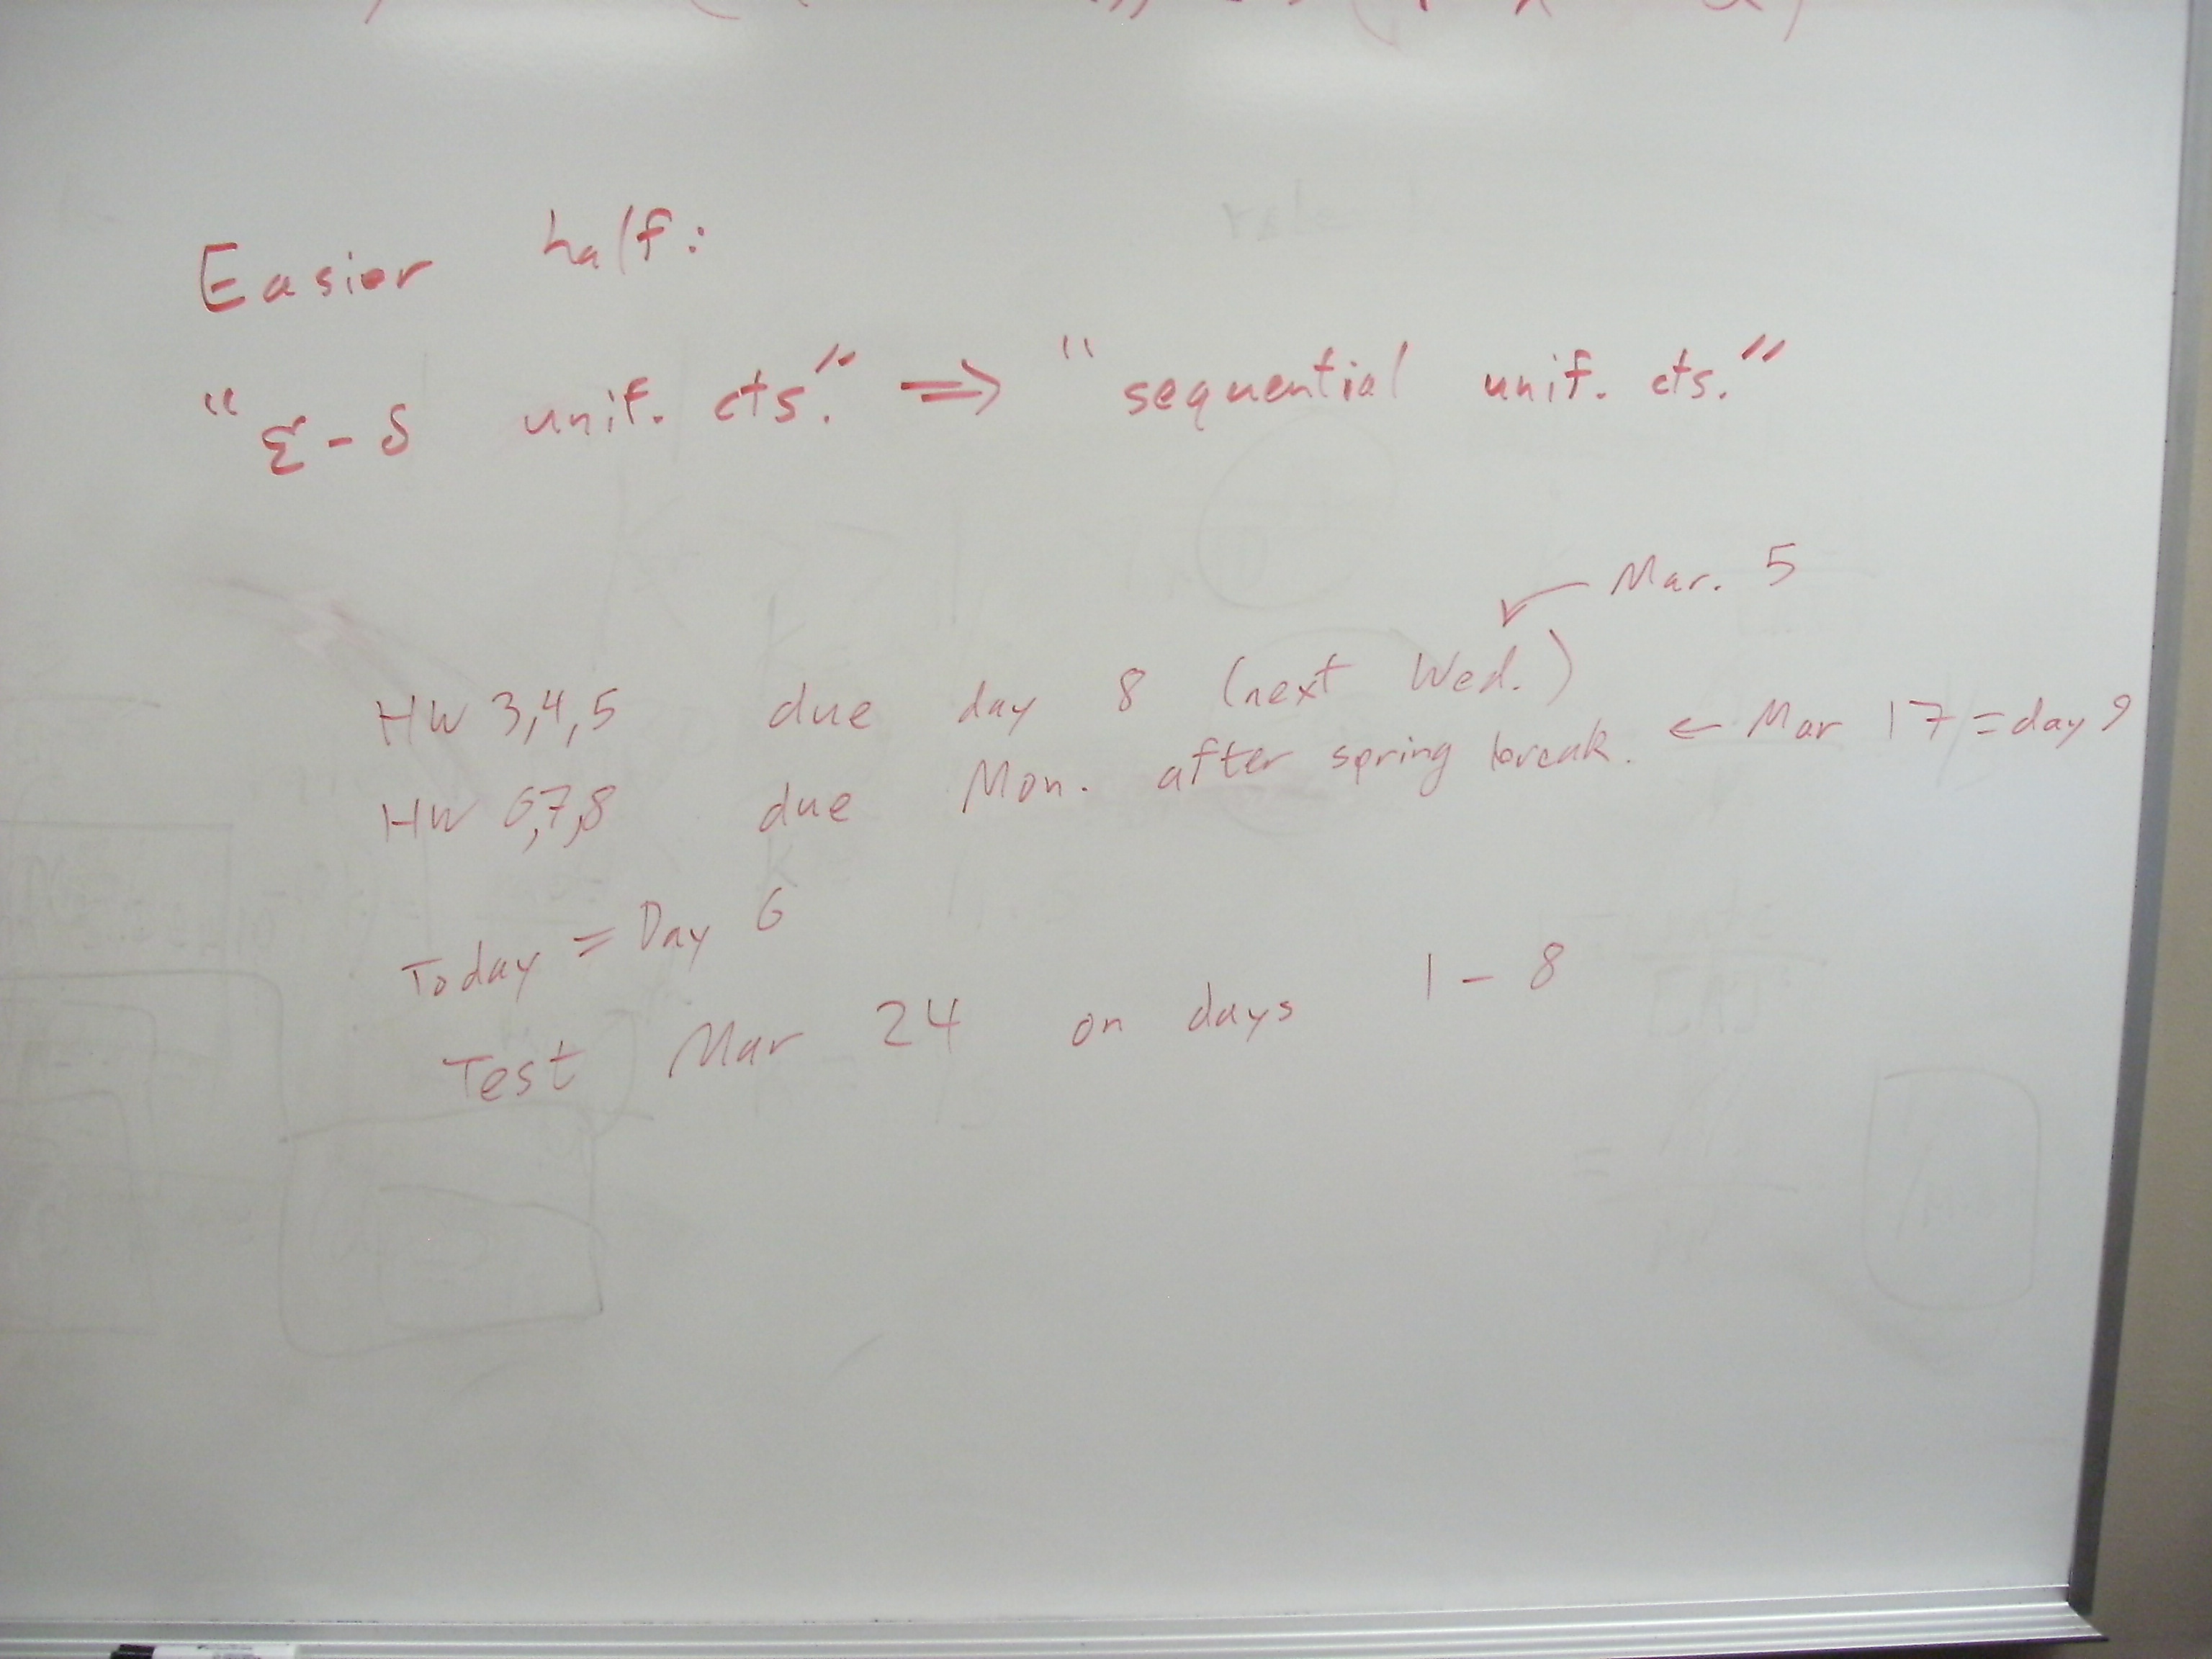 Easier half:
“ε-δ unif. cts.” ⇒ “sequential unif. cts.”
Mar. 5
HW 3,4,5 due day 8 (next Wed.)
HW 6,7,8 due Mon. after spring break. ← Mar 17 = day 9
Today = Day 6
Test Mar 24 on days 1 - 8